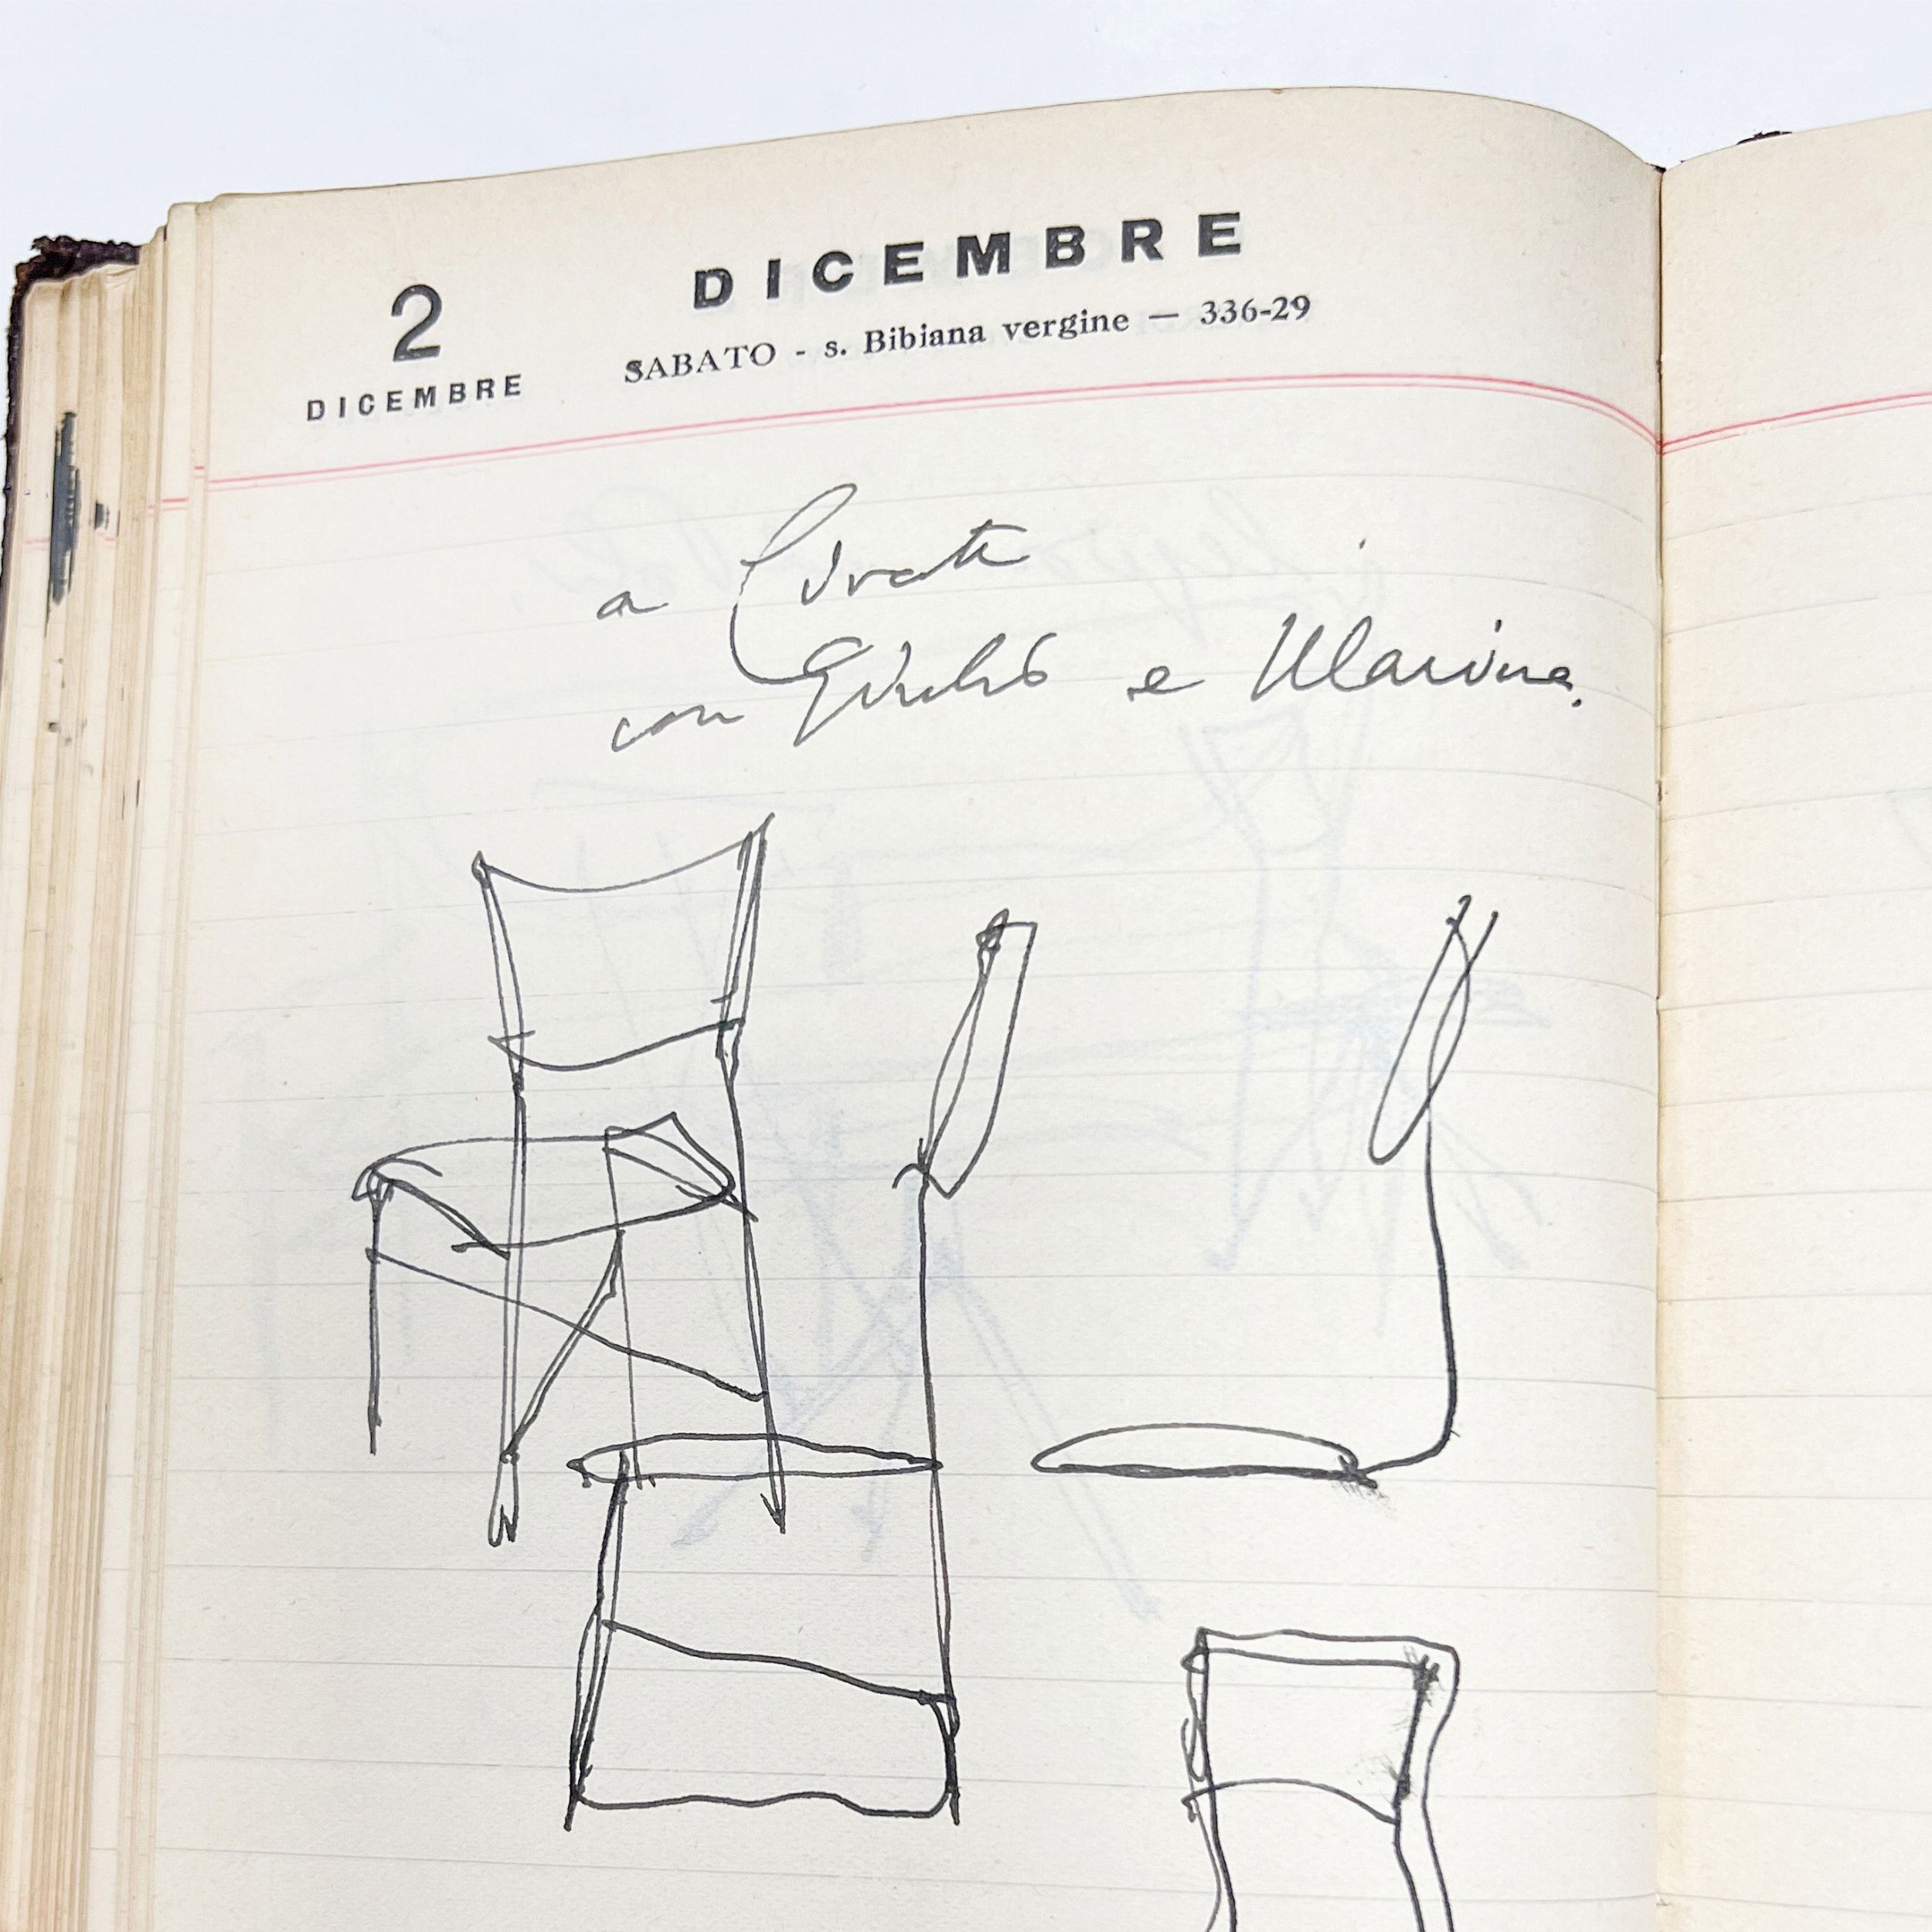 DICEMBRE
2
DICEMBRE
SABATO - s. Bibiana vergine — 336-29
a Curati
con Giulio e Marina.